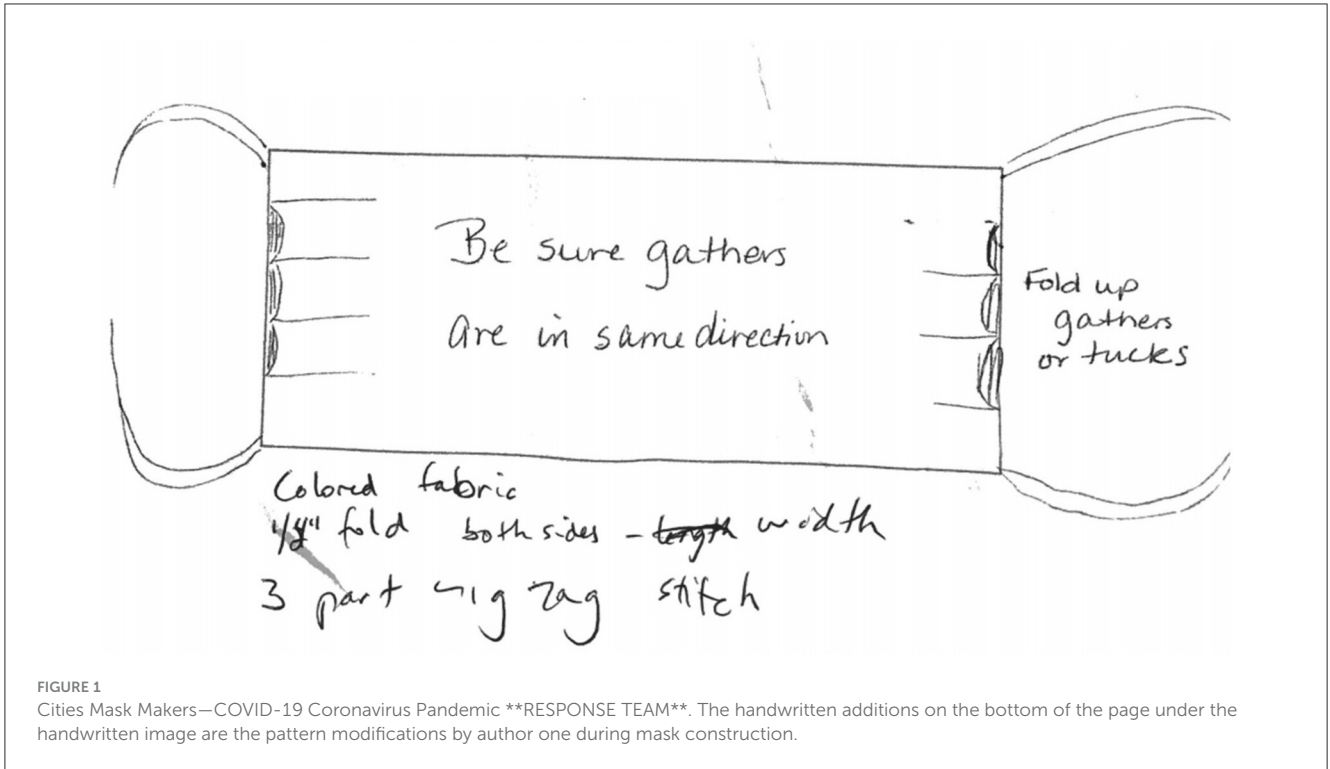 Be sure gathers
are in same direction
Fold up
gathers
or tucks
Colored fabric
fold both sides - length width
3 part zig zag stitch
FIGURE 1
Cities Mask Makers—COVID-19 Coronavirus Pandemic **RESPONSE TEAM**. The handwritten additions on the bottom of the page under the
handwritten image are the pattern modifications by author one during mask construction.